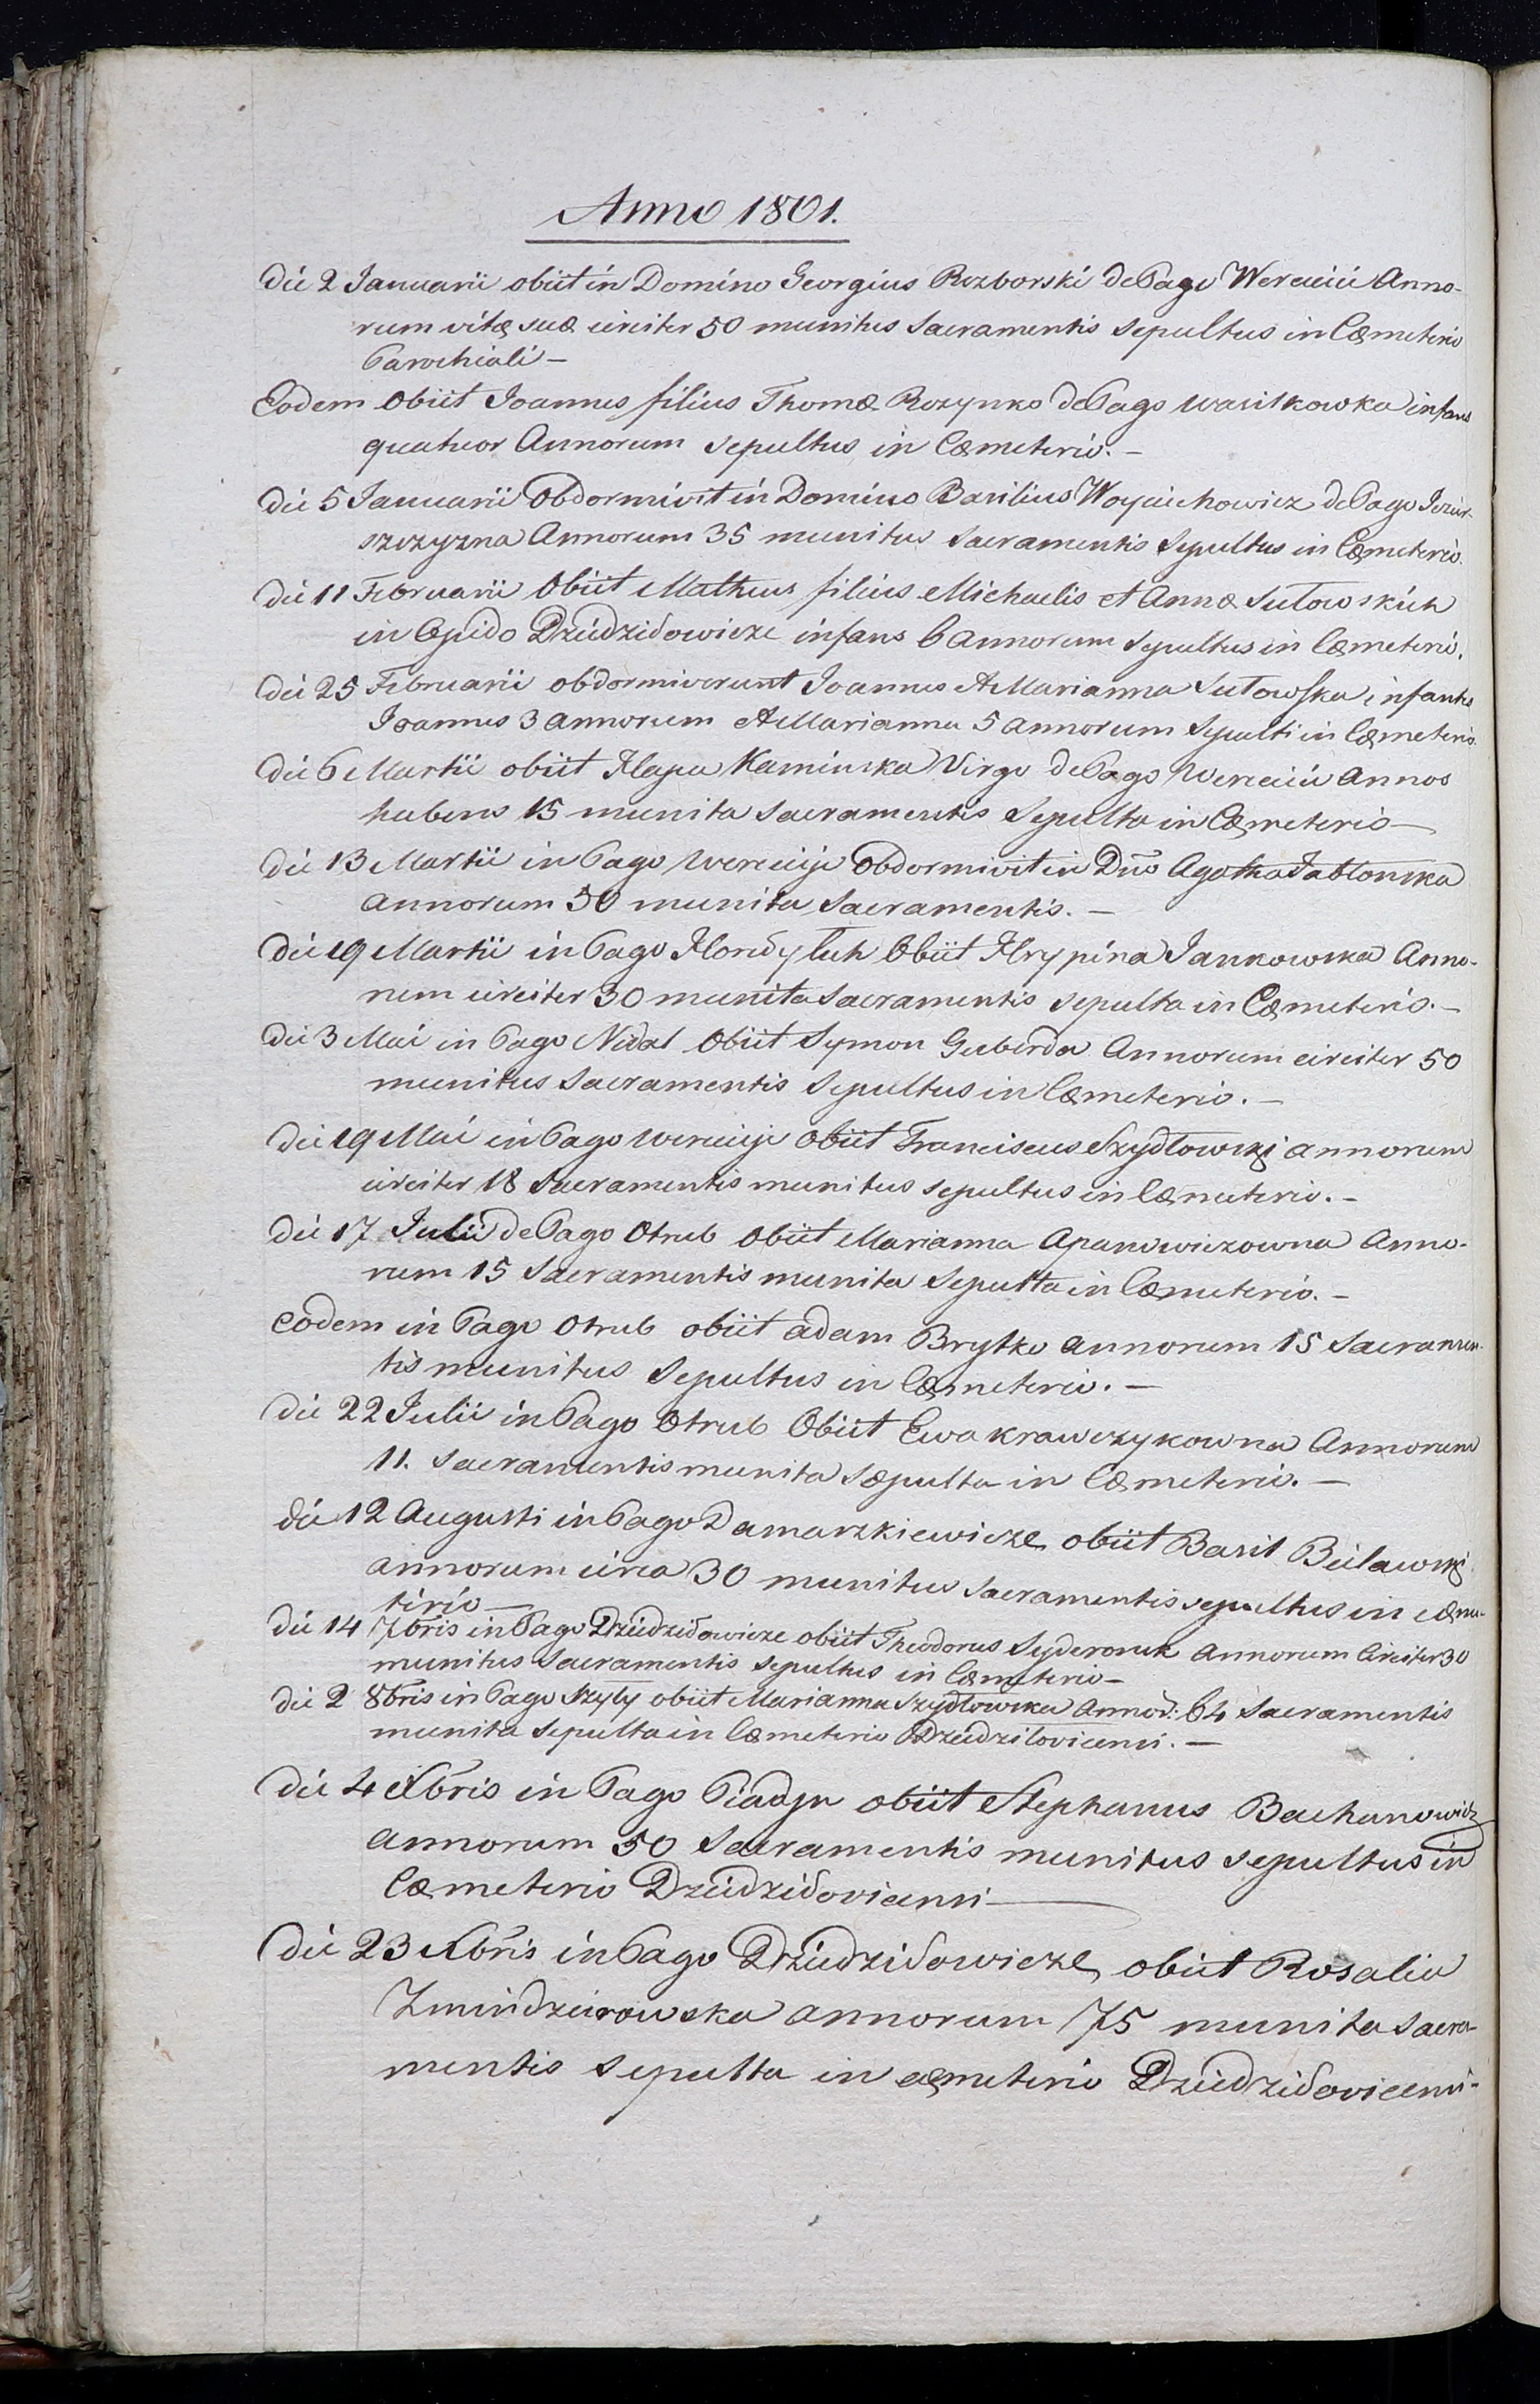 Anno 1801.
Die 2 Januarii obiit in Domino Georgius Rozborski de Pago Wereicii Anno-
rum vitæ suæ circiter 50 munitus Sacramentis Sepultus in Cœmeterio
Parochiali –
Eodem Obiit Joannes filius Thomæ Rozynko de Pago Wasilkowka infans
quatuor Annorum Sepultus in Cœmeterio. –
Die 5 Januarii Obdormivit in Domino Basilius Woyciechowicz de Pago
szczyzna Annorum 35 munitus Sacramentis Sepultus in Cœmeterio.
Die 11 Februarii Obiit Matheus filius Michaelis et Annæ Sutowskich
in Opido Dziedziłowicze infans 6 annorum Sepultus in Cœmeterio.
Die 25 Februarii obdormiverunt Joannes et Marianna Sutowska infantes
Joannes 3 annorum et Marianna 5 annorum Sepulti in Cœmeterio.
Die 6 Martii obiit Hapa Kaminska Virgo de Pago Wereicii Annos
habens 15 munita Sacramentis Sepulta in Cœmeterio –
Die 13 Martii in Pago Wereiije Obdormivit in Dno Agatha Jabłonska
annorum 50 munita Sacramentis. –
Die 19 Martii in Pago Obiit Hrypina Jankowska Anno-
rum circiter 30 munita Sacramentis sepulta in Cœmeterio. –
Die 3 Mai in Pago Nidal Obiit Symon Guberda Annorum circiter 50
munitus Sacramentis Sepultus in Cœmeterio. –
Die 19 Mai in Pago Wereiije obiit Franciscus Szydłowski annorum
circiter 18 Sacramentis munitus sepultus in Cœmeterio. –
Die 17 Julii de Pago Otrub Obiit Marianna Apanowiczowna Anno-
rum 15 Sacramentis munita Sepulta in Cœmeterio. –
Eodem in Pago Otrub obiit Adam Brytko annorum 15 Sacramen-
tis munitus Sepultus in Cœmeterio. –
Die 22 Julii in Pago Otrub Obiit Ewa Krawczykowna Annorum
11. Sacramentis munita Sæpulta in Cœmeterio. –
Die 12 Augusti in Pago Damaszkiewicze obiit Basil Bielawski
annorum circa 30 munitus Sacramentis sepultus in cœme-
terio –
Die 14 7bris in Pago Dziedziłowicze obiit Theodorus Syderonek Annorum Circiter 30
munitus Sacramentis Sepultus in Cœmeterio –
Die 2 8bris in Pago Szyły obiit Marianna Szydłowska Annor: 64 Sacramentis
munita Sepulta in Cœmeterio Dziedziloviensi. –
Die 4 Xbris in Pago Piadyn obiit Stephanus Bachanowicz
annorum 50 Sacramentis munitus sepultus in
Cœmeterio Dziedziłoviensi –
Die 23 Xbris in Pago Dziedziłowicze, obiit Rosalia
Zmindzierowska annorum 75 munita Sacra-
mentis Sepulta in cœmeterio Dziedziłoviensi –